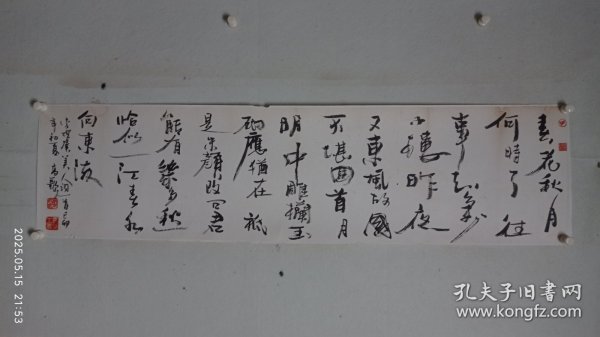 春花秋月
何時了往
事知多少
小樓昨夜
又東風故國
不堪回首月
明中雕欄玉
砌應猶在祗
是朱顏改問君
能有幾多愁
恰似一江春水
向東流
虞美人
2025.05.15 21:53
孔夫子旧书网
www.kongfz.com